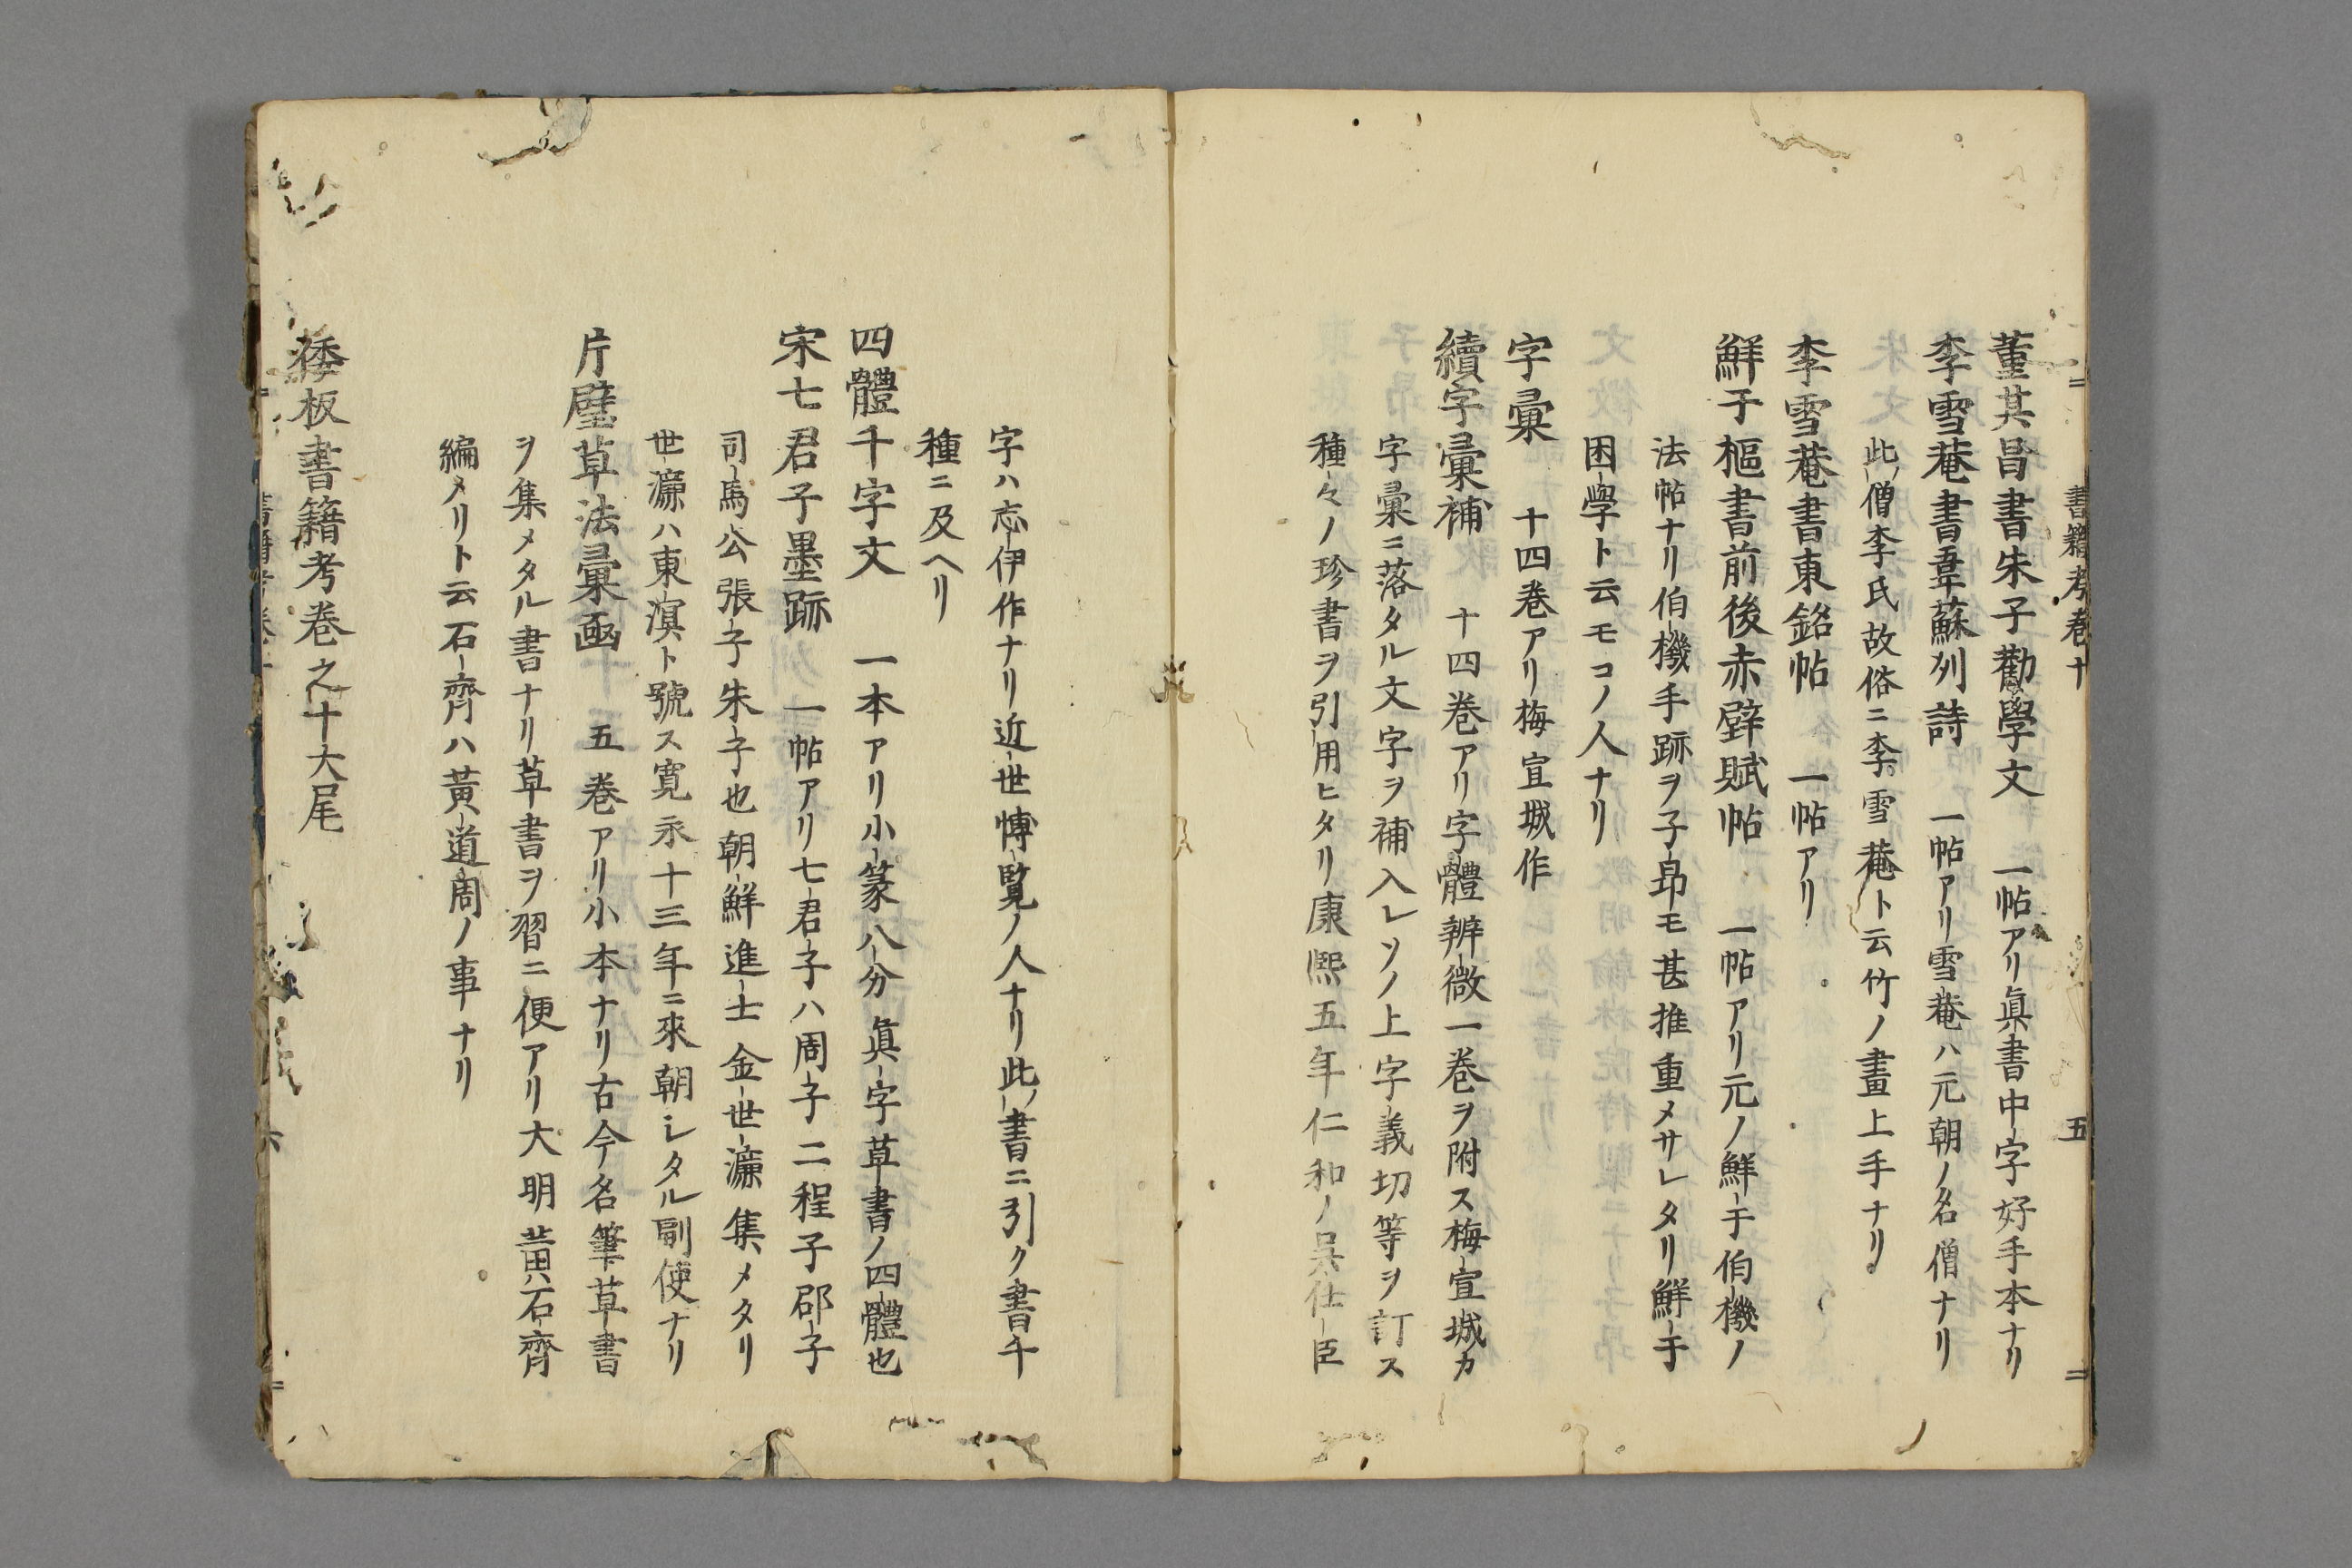 書籍考卷十
五
董其昌書朱子勸學文　一帖アリ眞書中字好手本ナリ
李雪菴書韋蘇列詩　一帖アリ雪菴ハ元朝ノ名僧ナリ
此ノ僧李氏故俗ニ李雪菴ト云竹ノ畫上手ナリ
李雪菴書東銘帖　一帖アリ
鮮于樞書前後赤壁賦帖　一帖アリ元ノ鮮于伯機ノ
法帖ナリ伯機手跡ヲ子昻モ甚推重メサレタリ鮮于
困學ト云モコノ人ナリ
字彙　十四卷アリ梅宣城作
續字彙補　十四卷アリ字體辨微一卷ヲ附ス梅宣城カ
字彙ニ落タル文字ヲ補入レソノ上字義切等ヲ訂ス
種々ノ珍書ヲ引用ヒタリ康熙五年仁和ノ吳仕臣
字ハ志伊作ナリ近世博覽ノ人ナリ此ノ書ニ引ク書千
種ニ及ヘリ
四體千字文　一本アリ小篆八分眞字草書ノ四體也
宋七君子墨跡　一帖アリ七君子ハ周子二程子邵子
司馬公張子朱子也朝鮮進士金世濂集メタリ
世濂ハ東溟ト號ス寬永十三年ニ來朝シタル副使ナリ
片璧草法彙函　五卷アリ小本ナリ古今名筆草書
ヲ集メタル書ナリ草書ヲ習ニ便アリ大明黃石齊
編メリト云石齊ハ黃道周ノ事ナリ
倭板書籍考卷之十大尾
六